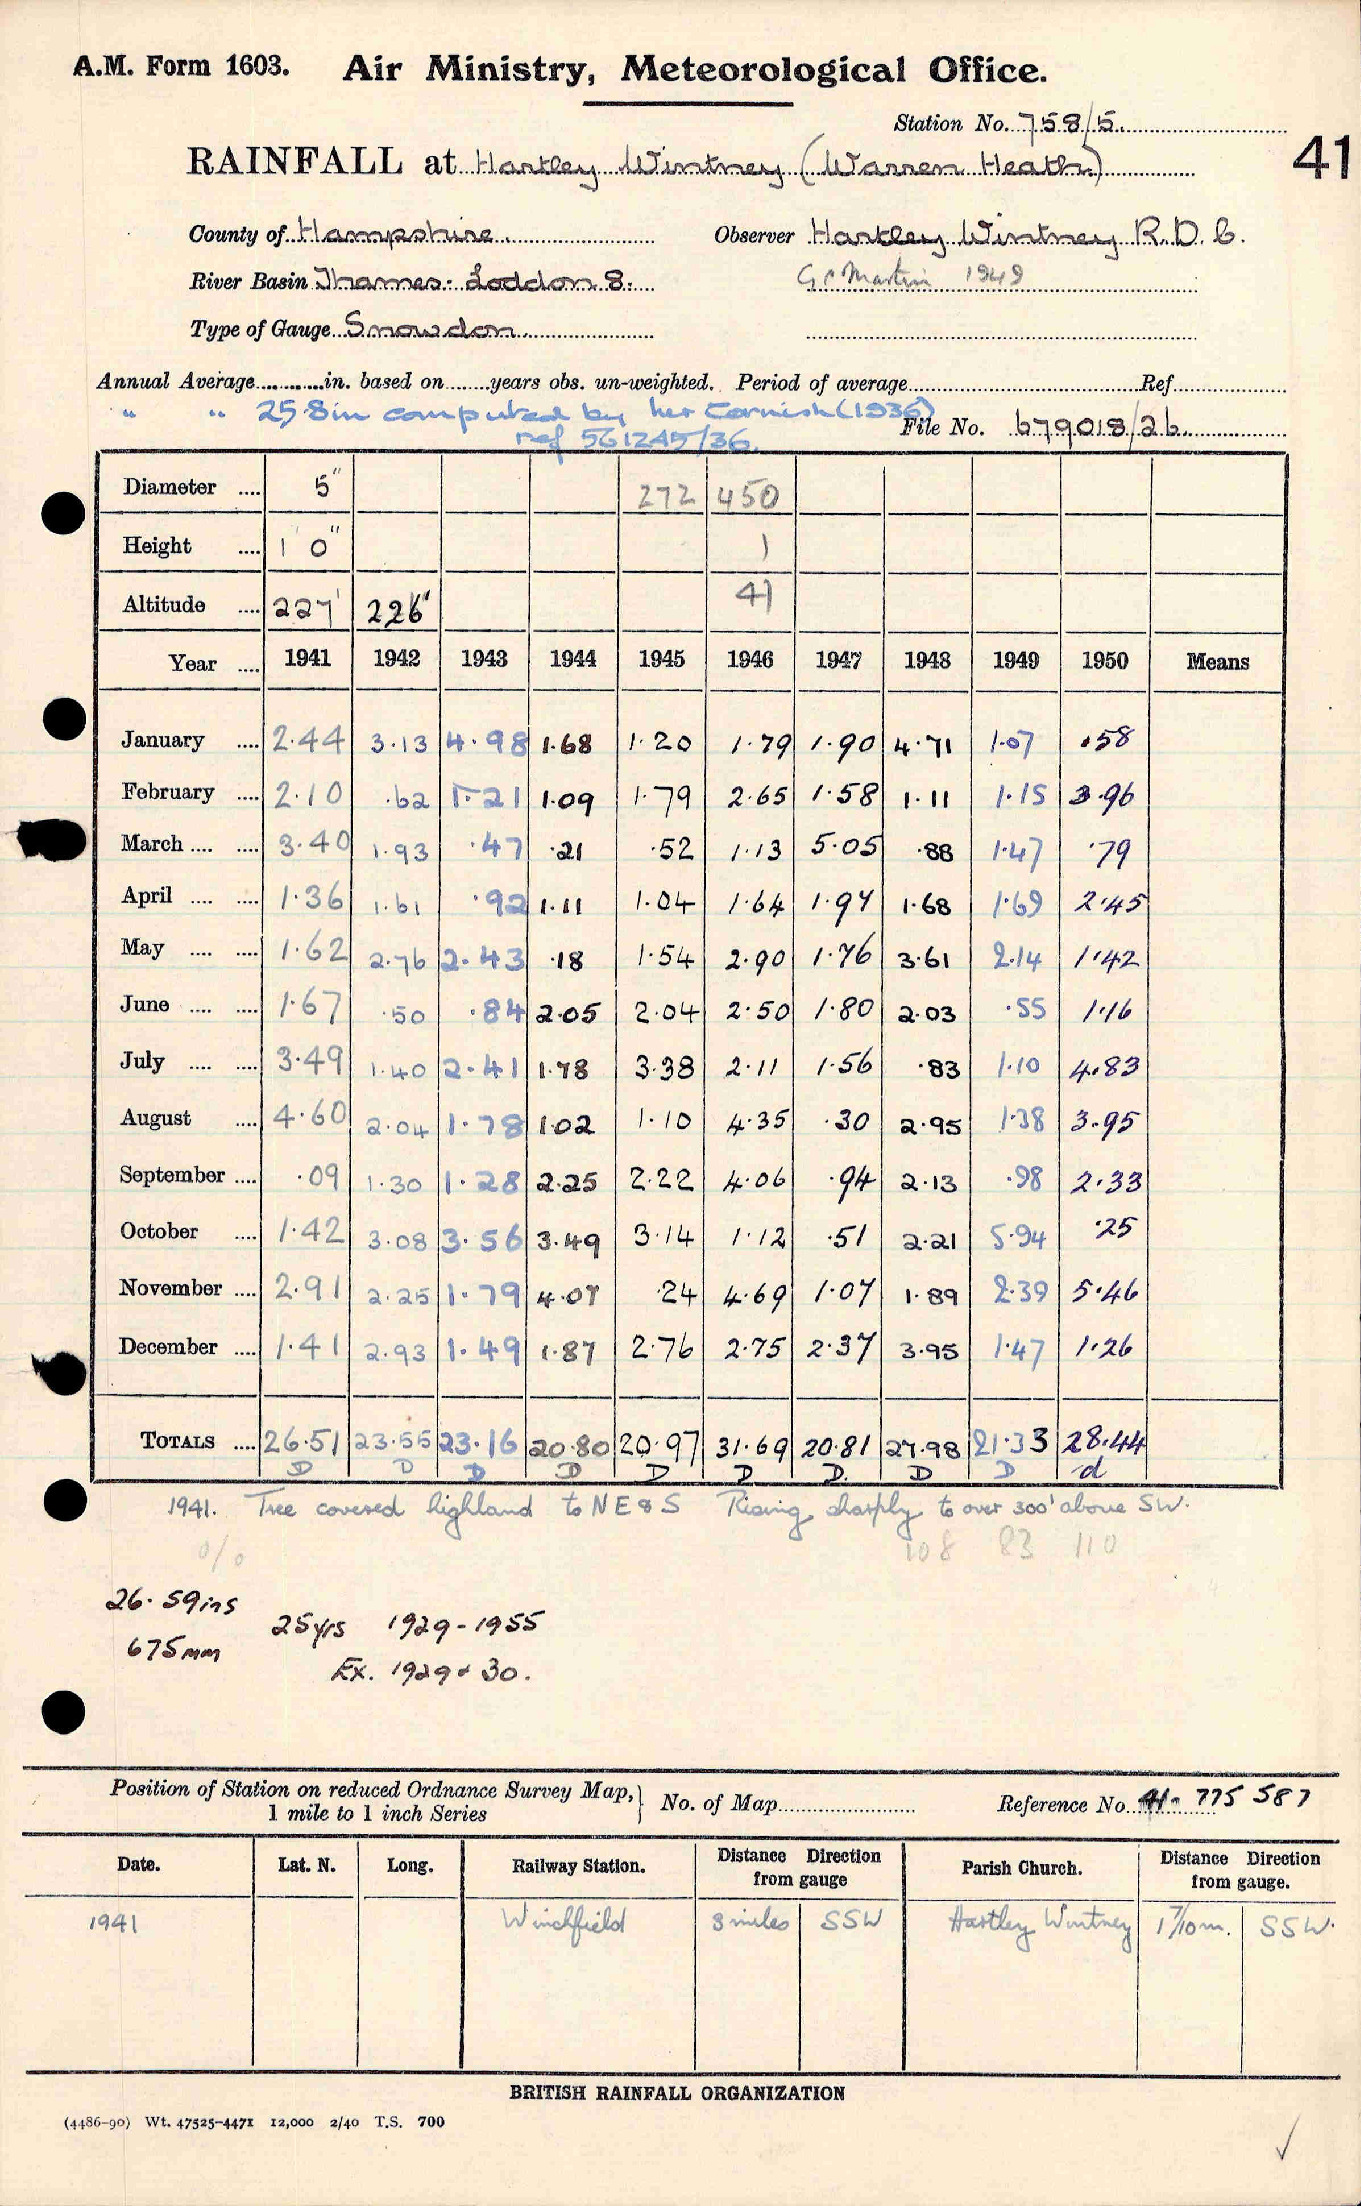 A.M. Form 1603. Air Ministry, Meteorological Office.
Station No. 758/5.
41
RAINFALL at Hartley Wintney (Warren Heath)
County of Hampshire. Observer Hartley Wintney R.D.C.
River Basin Thames. Loddon 8. G P Martin 1949
Type of Gauge Snowdon.
Annual Average in. based on years obs. un-weighted. Period of average Ref.
" " 25.8in computed by her Cornish (1936)
File No. 679018/26
ref 561245/36.
Diameter .... 5" 272 450
Height .... 1' 0" 1
Altitude .... 227' 226' 41
Year .... 1941 1942 1943 1944 1945 1946 1947 1948 1949 1950 Means
January .... 2.44 3.13 4.98 1.68 1.20 1.79 1.90 4.71 1.07 .58
February .... 2.10 .62 1.21 1.09 1.79 2.65 1.58 1.11 1.15 3.96
March .... .... 3.40 1.93 .47 .21 .52 1.13 5.05 .88 1.47 .79
April .... .... 1.36 1.61 .92 1.11 1.04 1.64 1.97 1.68 1.69 2.45
May .... .... 1.62 2.76 2.43 .18 1.54 2.90 1.76 3.61 2.14 1.42
June .... .... 1.67 .50 .84 2.05 2.04 2.50 1.80 2.03 .55 1.16
July .... .... 3.49 1.40 2.41 1.78 3.38 2.11 1.56 .83 1.10 4.83
August .... 4.60 2.04 1.78 1.02 1.10 4.35 .30 2.95 1.38 3.95
September .... .09 1.30 1.28 2.25 2.22 4.06 .94 2.13 .98 2.33
October .... 1.42 3.08 3.56 3.49 3.14 1.12 .51 2.21 5.94 .25
November .... 2.91 2.25 1.79 4.07 .24 4.69 1.07 1.89 2.39 5.46
December .... 1.41 2.93 1.49 1.87 2.76 2.75 2.37 3.95 1.47 1.26
TOTALS .... 26.51 23.55 23.16 20.80 20.97 31.69 20.81 27.98 21.33 28.44
D D D D D D D. D D d
1941. Tree covered highland to NE & S Rising sharply to over 300' above SW.
% 108 83 110
26.59ins
25yrs 1929-1955
675mm
Ex. 1929 & 30.
Position of Station on reduced Ordnance Survey Map, 1 mile to 1 inch Series } No. of Map Reference No. 41. 775 587
Date. Lat. N. Long. Railway Station. Distance Direction from gauge Parish Church. Distance Direction from gauge.
1941 Winchfield 3 miles SSW Hartley Wintney 1 7/10 m. SSW.
BRITISH RAINFALL ORGANIZATION
(4486-90) Wt. 47525-4471 12,000 2/40 T.S. 700